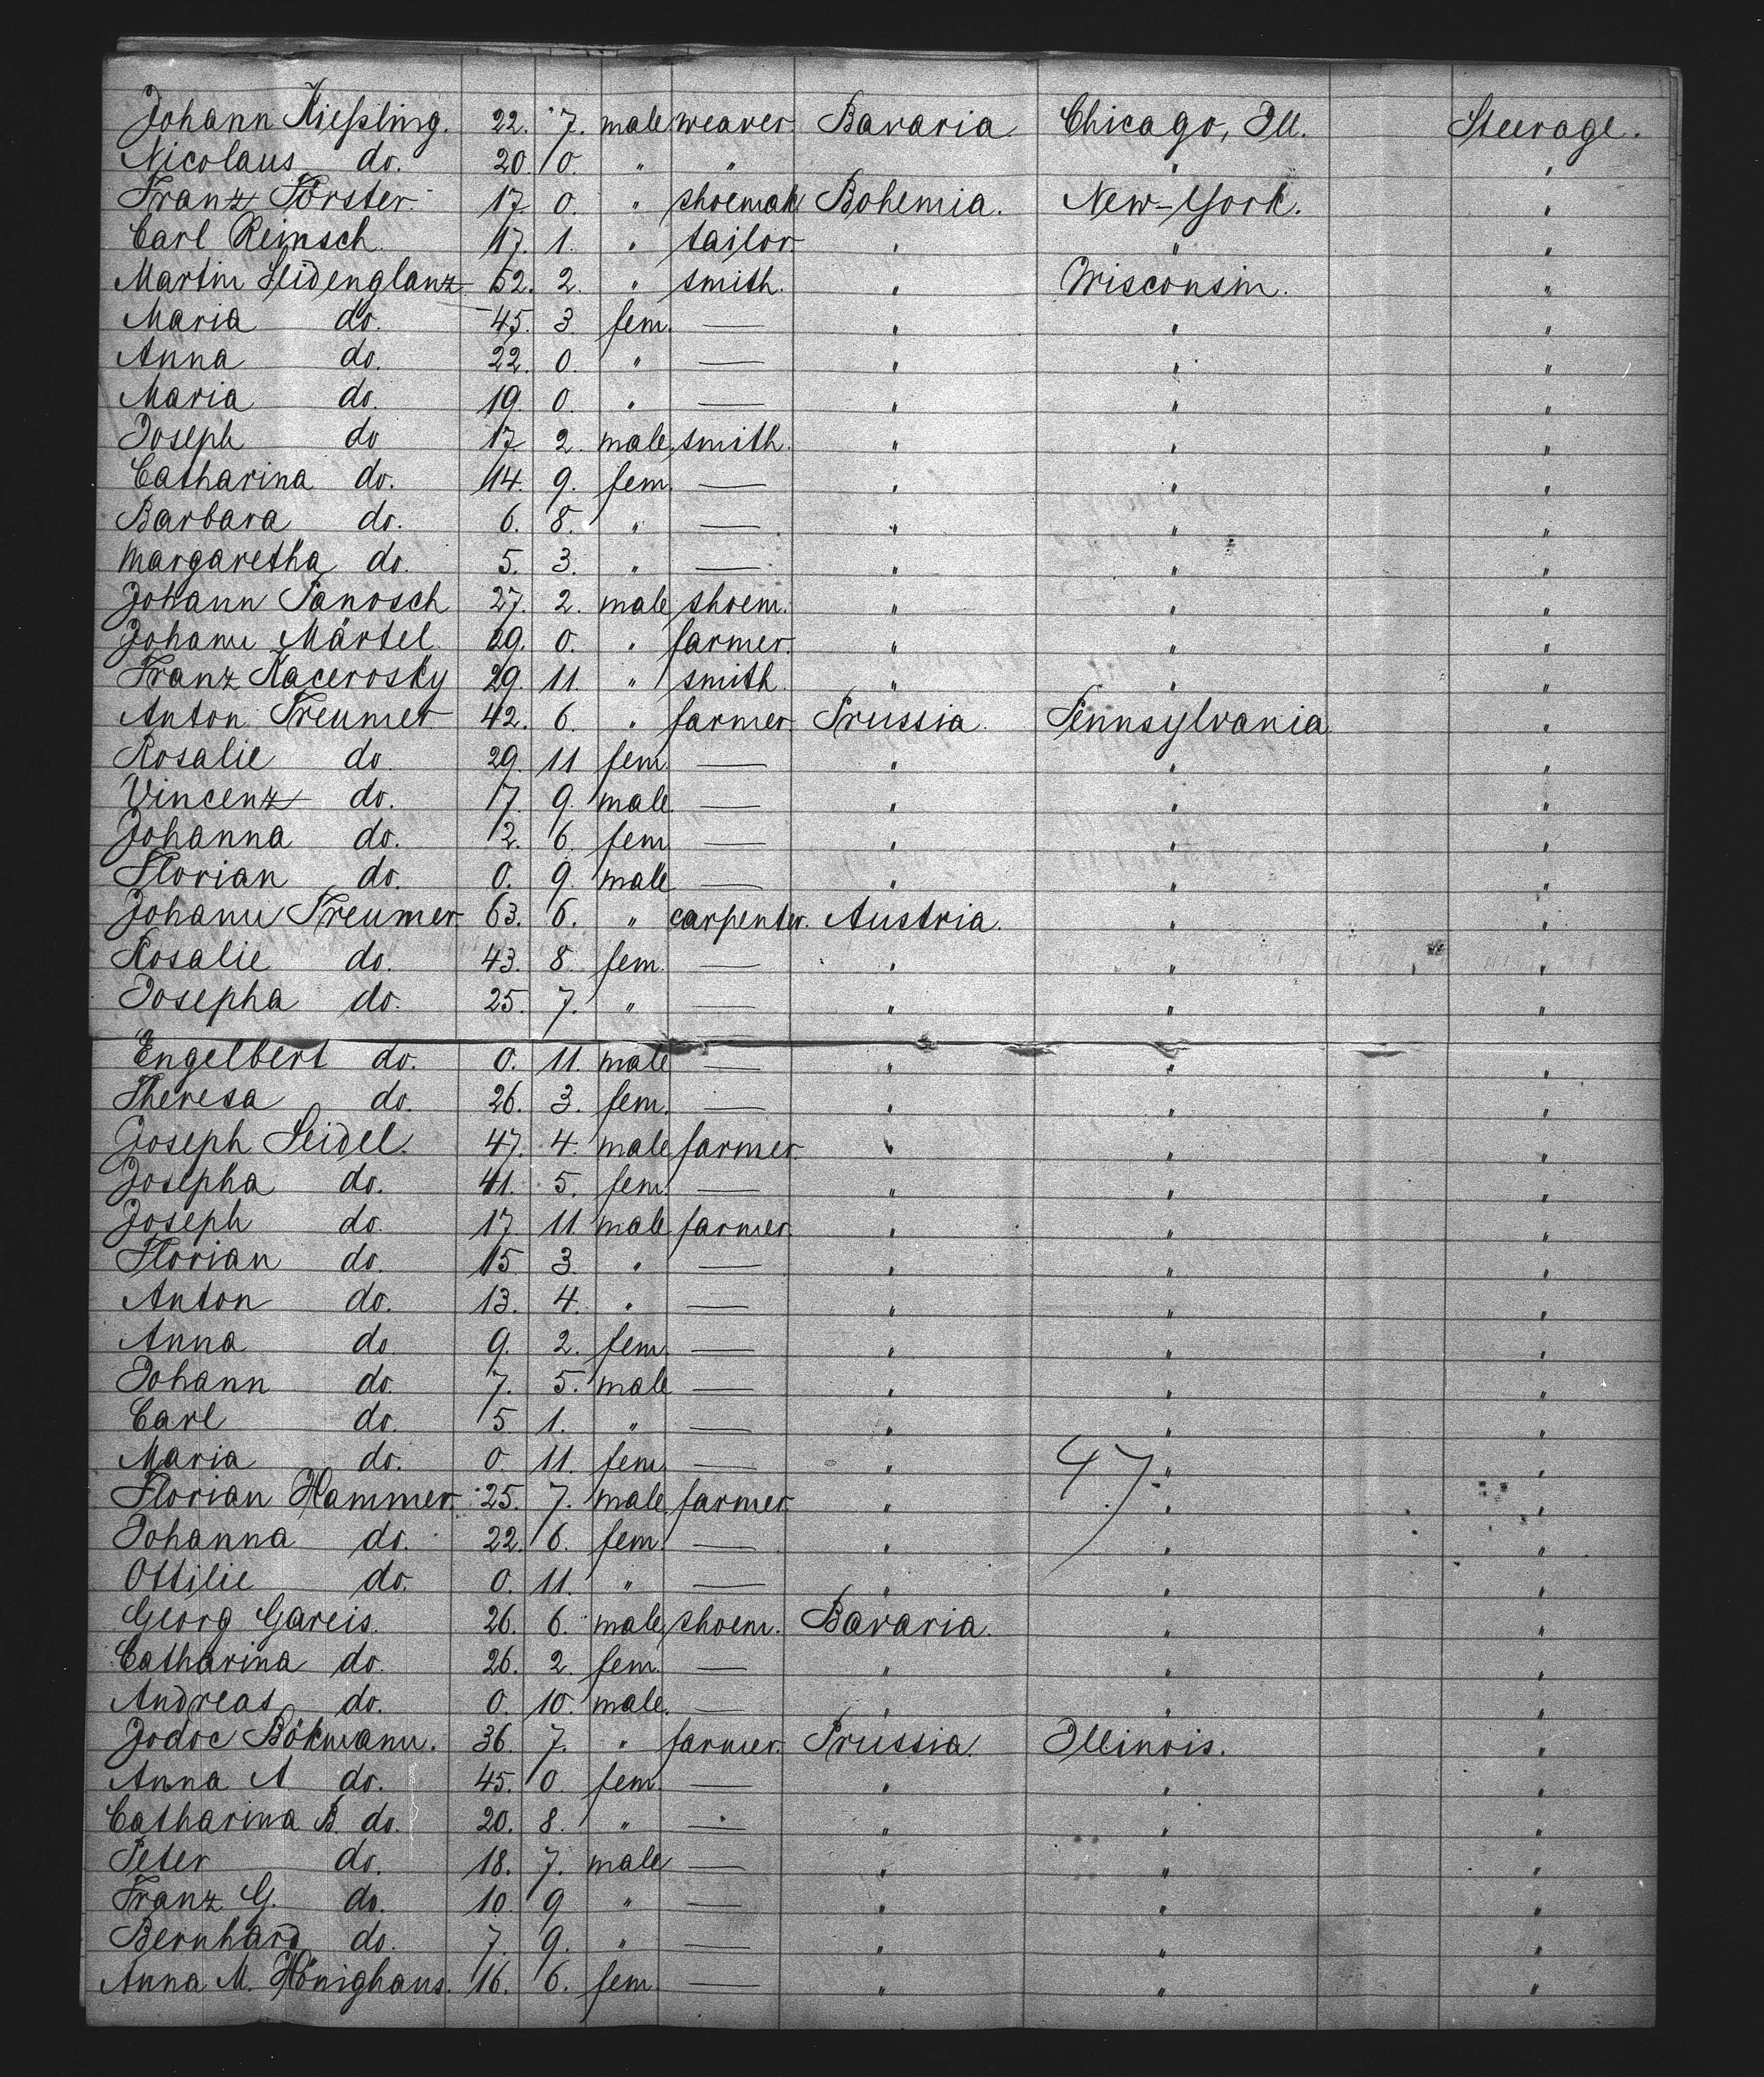 Johann Kießling. 22. 7. male weaver Bavaria Chicago, Ill. Steerage.
Nicolaus do. 20. 0. " " " "
Franz Förster. 17. 0. " shoemak Bohemia. New-York. "
Carl Reinsch. 17. 1. " tailor " " "
Martin Seidenglanz 52. 2. " smith. " Wisconsin. "
Maria do. 45. 3. fem. — " " "
Anna do. 22. 0. " — " " "
Maria do. 19. 0. " — " " "
Joseph do 17. 2. male smith. " " "
Catharina do. 14. 9. fem. — " " "
Barbara do. 6. 8. " — " " "
Margaretha do. 5. 3. " — " " "
Johann Panosch 27. 2. male shoem. " " "
Johann Märtel 29. 0. " farmer. " " "
Franz Kacerosky 29. 11. " smith. " " "
Anton Treumer 42. 6. " farmer. Prussia. Pennsylvania "
Rosalie do. 29. 11 fem. — " " "
Vincenz do. 17. 9. male — " " "
Johanna do. 2. 6. fem. — " " "
Florian do. 0. 9. male — " " "
Johann Treumer 63. 6. " carpenter. Austria. " "
Rosalie do. 43. 8. fem. — " " "
Josepha do. 25. 7. " — " " "
Engelbert do. 0. 11. male — " " "
Theresa do. 26. 3. fem. — " " "
Joseph Seidel. 47. 4. male farmer. " " "
Josepha do. 41. 5. fem. — " " "
Joseph do. 17. 11. male farmer. " " "
Florian do. 15 3. " — " " "
Anton do. 13. 4. " — " " "
Anna do. 9. 2. fem. — " " "
Johann do. 7. 5. male — " " "
Carl do. 5 1. " — " " "
Maria do. 0. 11. fem. — " 47. " "
Florian Hammer. 25. 7. male farmer " " "
Johanna do. 22. 6. fem. — " " "
Ottilie do. 0. 11. " — " " "
Georg Gareis. 26. 6. male shoem. Bavaria. " "
Catharina do. 26. 2. fem. — " " "
Andreas do. 0. 10. male. — " " "
Jodoc Bökmann. 36. 7. " farmer. Prussia. Illinois. "
Anna A. do. 45. 0. fem. — " " "
Catharina B. do. 20. 8. " — " " "
Peter do. 18. 7. male — " " "
Franz G. do. 10. 9 " — " " "
Bernhard do. 7. 9. " — " " "
Anna M. Hönighaus. 16. 6. fem. — " " "